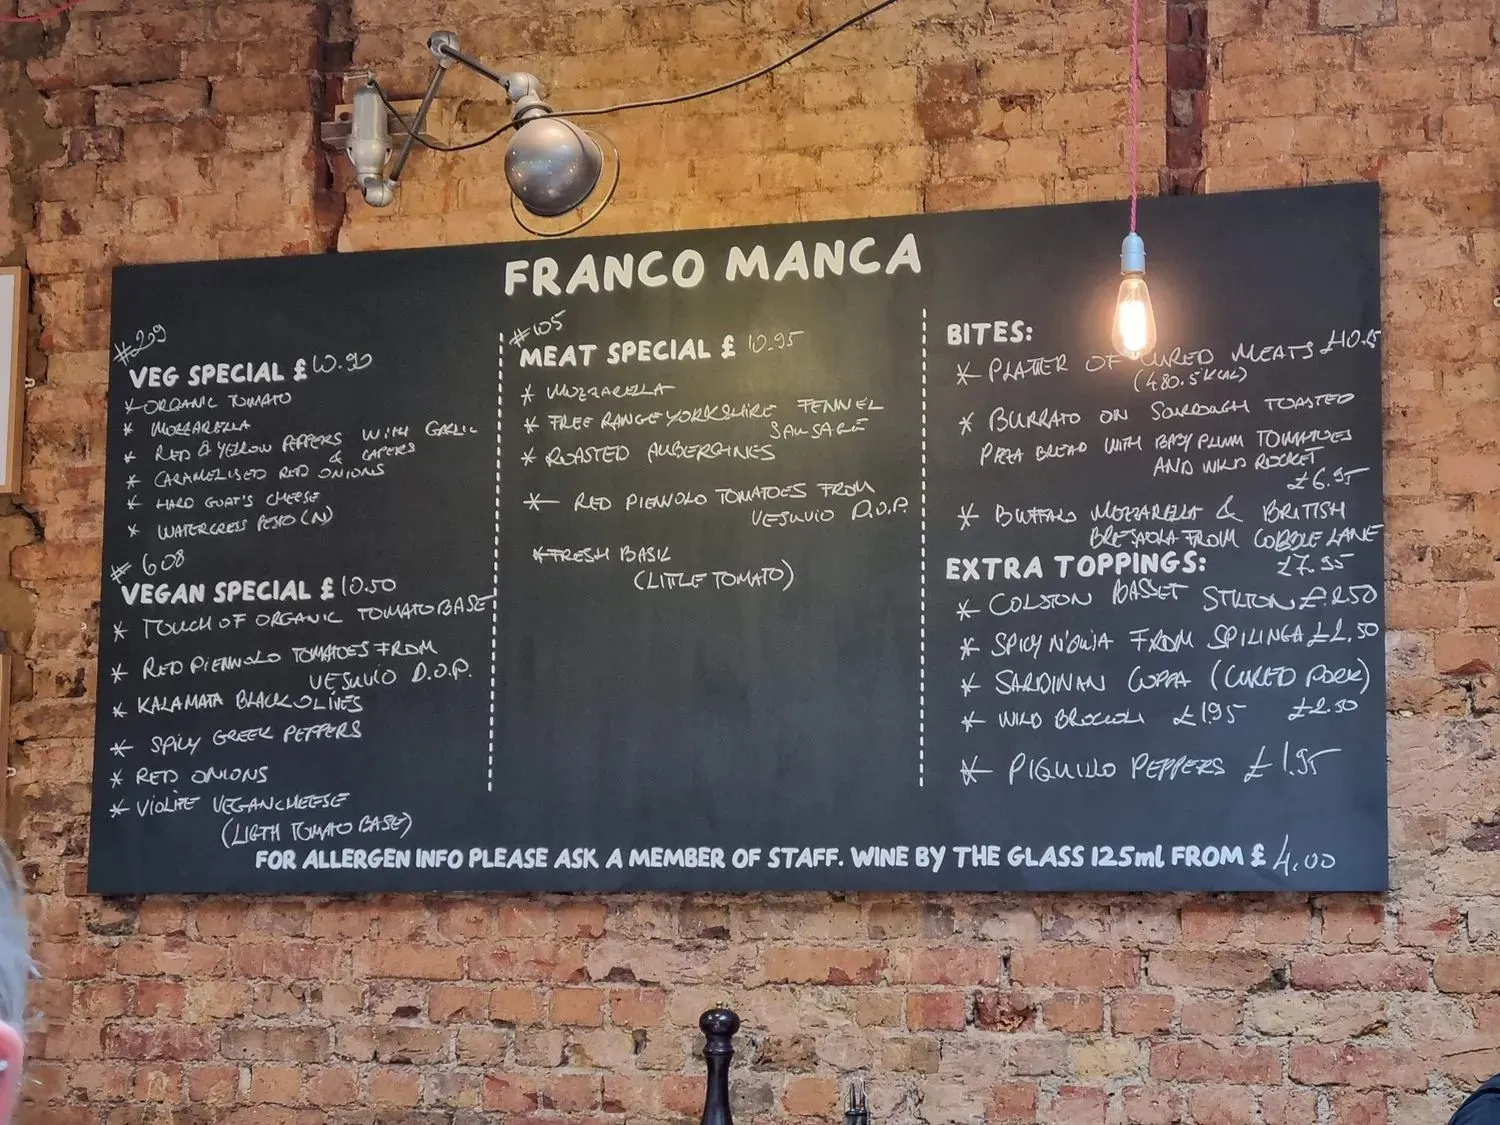 FRANCO MANCA
#209
VEG SPECIAL £10.90
* ORGANIC TOMATO
* MOZZARELLA
* RED & YELLOW PEPPERS WITH GARLIC
& CAPERS
* CARAMELISED RED ONIONS
* HARD GOAT'S CHEESE
* WATERCRESS PESTO (N)
# 608
VEGAN SPECIAL £10.50
* TOUCH OF ORGANIC TOMATO BASE
* RED PIENNOLO TOMATOES FROM
VESUVIO D.O.P.
* KALAMATA BLACK OLIVES
* SPICY GREEK PEPPERS
* RED ONIONS
* VIOLIFE VEGAN CHEESE
(LIGTH TOMATO BASE)
#105
MEAT SPECIAL £ 10.95
* MOZZARELLA
* FREE RANGE YORKSHIRE FENNEL
SAUSAGE
* ROASTED AUBERGINES
* RED PIENNOLO TOMATOES FROM
VESUVIO D.O.P.
* FRESH BASIL
(LITTLE TOMATO)
BITES:
* PLATTER OF CURED MEATS
(480.5 KCAL)
* BURRATO ON SOURDOUGH TOASTED
PIZZA BREAD WITH BABY PLUM TOMATOES
AND WILD ROCKET
£6.95
* BUFFALO MOZZARELLA & BRITISH
BRESAOLA FROM COBBLE LANE
£7.95
EXTRA TOPPINGS:
* COLSTON BASSET STILTON £2.50
* SPICY N'DUJA FROM SPILINGA £2.50
* SARDINIAN COPPA (CURED PORK)
£2.50
* WILD BROCCOLI £1.95
* PIQUILLO PEPPERS £1.95
FOR ALLERGEN INFO PLEASE ASK A MEMBER OF STAFF. WINE BY THE GLASS 125ml FROM £ 4.00